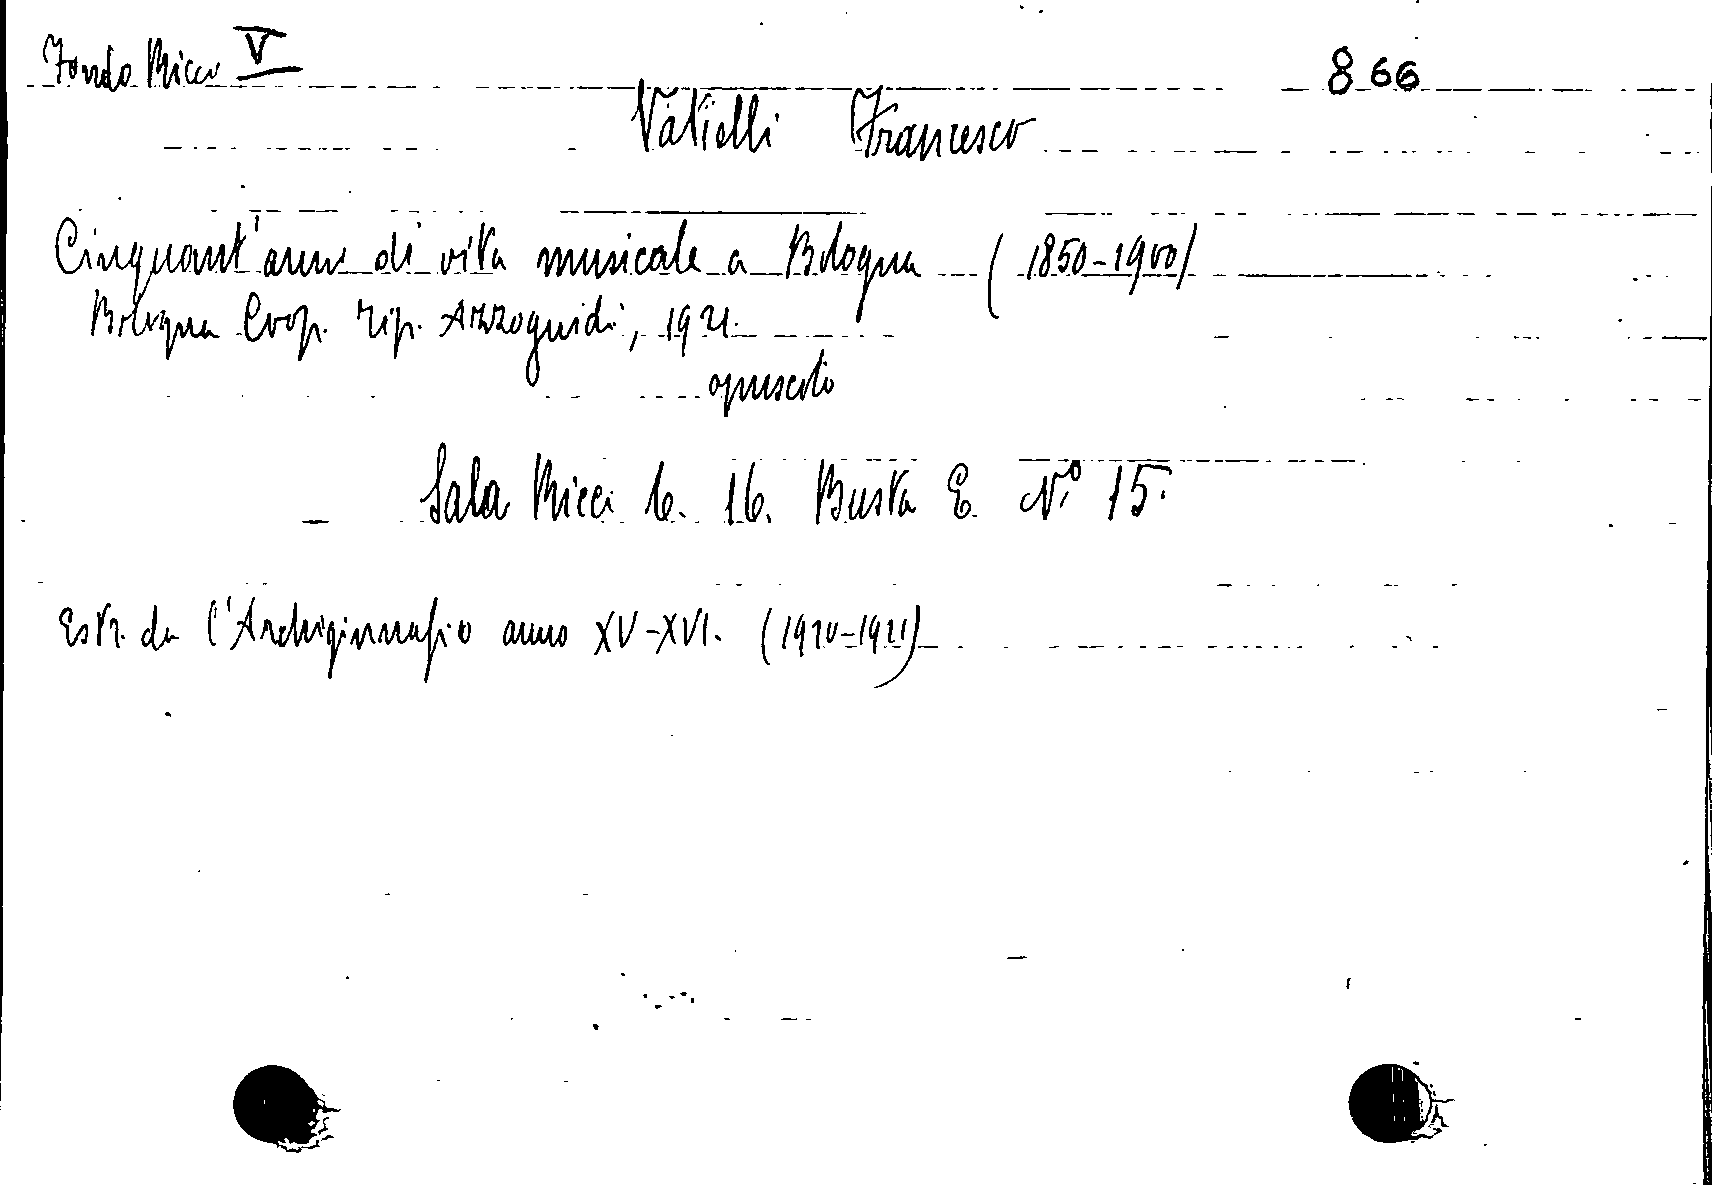 Fondo Ricci V 866
Vatielli Francesco
Cinquant'anni di vita musicale a Bologna (1850-1900)
Bologna Coop. Tip. Azzoguidi, 1921.
opuscolo
Sala Ricci C. 16. Busta E N.º 15.
Estr. da l'Archiginnasio anno XV-XVI. (1920-1921)